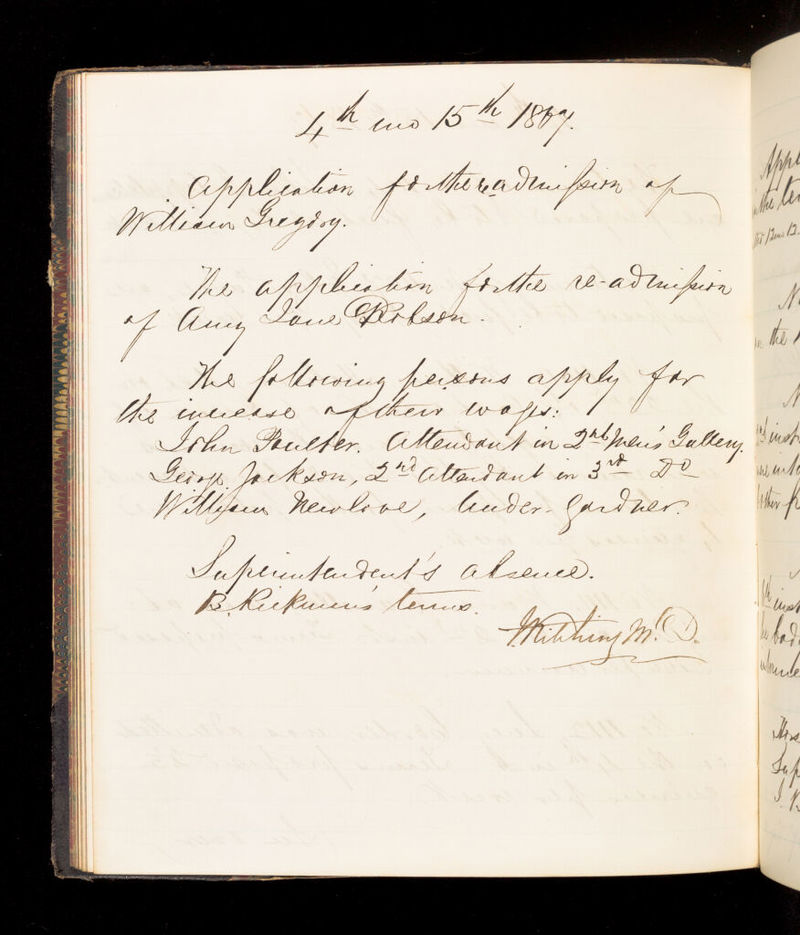 4th mo 15th 1867.
Application for the readmission of
William Gregory.
The application for the re-admission
of Amy Jane Robson.
The following persons apply for
the increase of their wages:
John Poulter. Attendant in 2nd Men's Gallery.
George Jackson, 2nd Attendant in 3rd Do
William Newlove, Under-gardner.
Superintendent's absence.
B. Rickman's terms.
J. Kitching M.D.
Appl
in the
N
the
N
inst
Sup